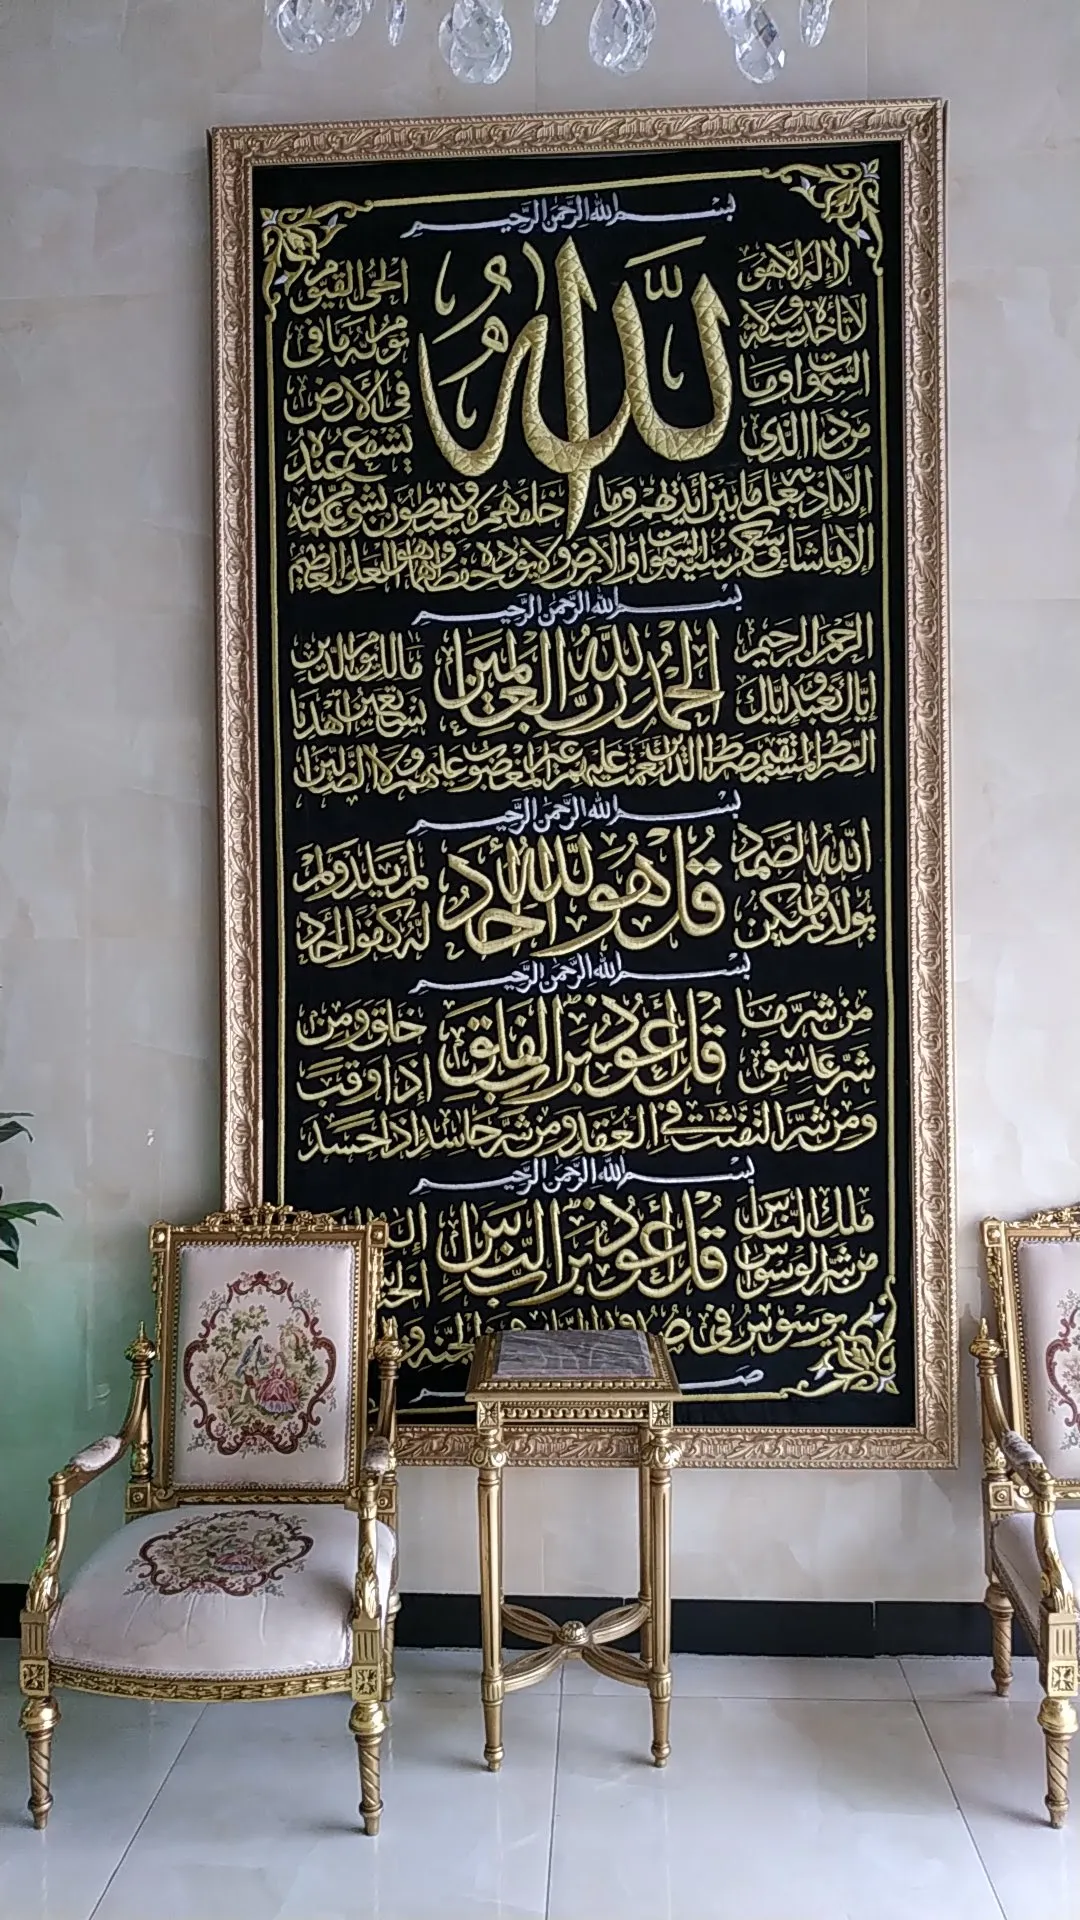 بسم الله الرحمن الرحيم
الله لا إله إلا هو الحي القيوم
لا تأخذه سنة ولا نوم له ما في
السموات وما في الأرض
من ذا الذي يشفع عنده
إلا بإذنه يعلم ما بين أيديهم وما خلفهم ولا يحيطون بشيء من علمه
إلا بما شاء وسع كرسيه السموات والأرض ولا يؤده حفظهما وهو العلي العظيم
بسم الله الرحمن الرحيم
الحمد لله رب العالمين
الرحمن الرحيم مالك يوم الدين
إياك نعبد وإياك نستعين اهدنا
الصراط المستقيم صراط الذين أنعمت عليهم غير المغضوب عليهم ولا الضالين
بسم الله الرحمن الرحيم
قل هو الله أحد
الله الصمد لم يلد ولم
يولد ولم يكن له كفوا أحد
بسم الله الرحمن الرحيم
قل أعوذ برب الفلق
من شر ما خلق ومن
شر غاسق إذا وقب
ومن شر النفثت في العقد ومن شر حاسد إذا حسد
بسم الله الرحمن الرحيم
قل أعوذ برب الناس
ملك الناس
من شر الوسواس
يوسوس في